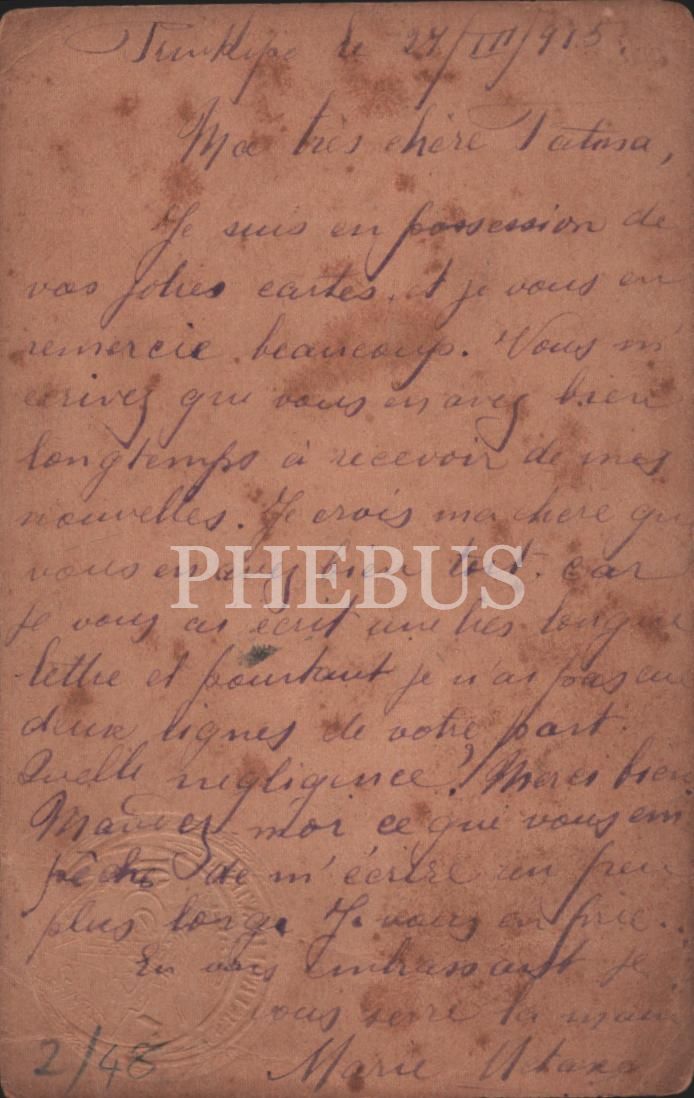 Prinkipo le 27/III/915.
Ma très chère Fatma,
Je suis en possession de
vos jolies cartes, et je vous en
remercie beaucoup. Vous m'
écrivez que vous en avez bien
longtemps à recevoir de mes
nouvelles. Je crois ma chere que
vous en avez bien tort. car
je vous ai écrit une très longue
lettre et pourtant je n'ai pas eu
deux lignes de votre part.
Quelle negligence! Merci bien.
Mandez-moi ce que vous em
pêche de m'écrire un peu
plus long. Je vous en prie.
En vous embrassant je
vous serre la main
Marie
2/48
PHEBUS